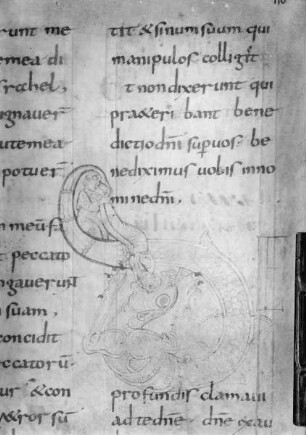 runt me
emea di
srahel,
ugnauer̄
utemea
potuer̄
m meū fa
t peccato
ngauerunt
suam,
concidit
ccatorū·
ur & con
rorsū
tit & sinum suum qui
manipulos colligit
t non dixerunt qui
praeteri bant bene
dictio dn̄i sup uos be
nediximus uobis inno
mine dn̄i,
profundis clamaui
ad te dn̄e· dn̄e exau